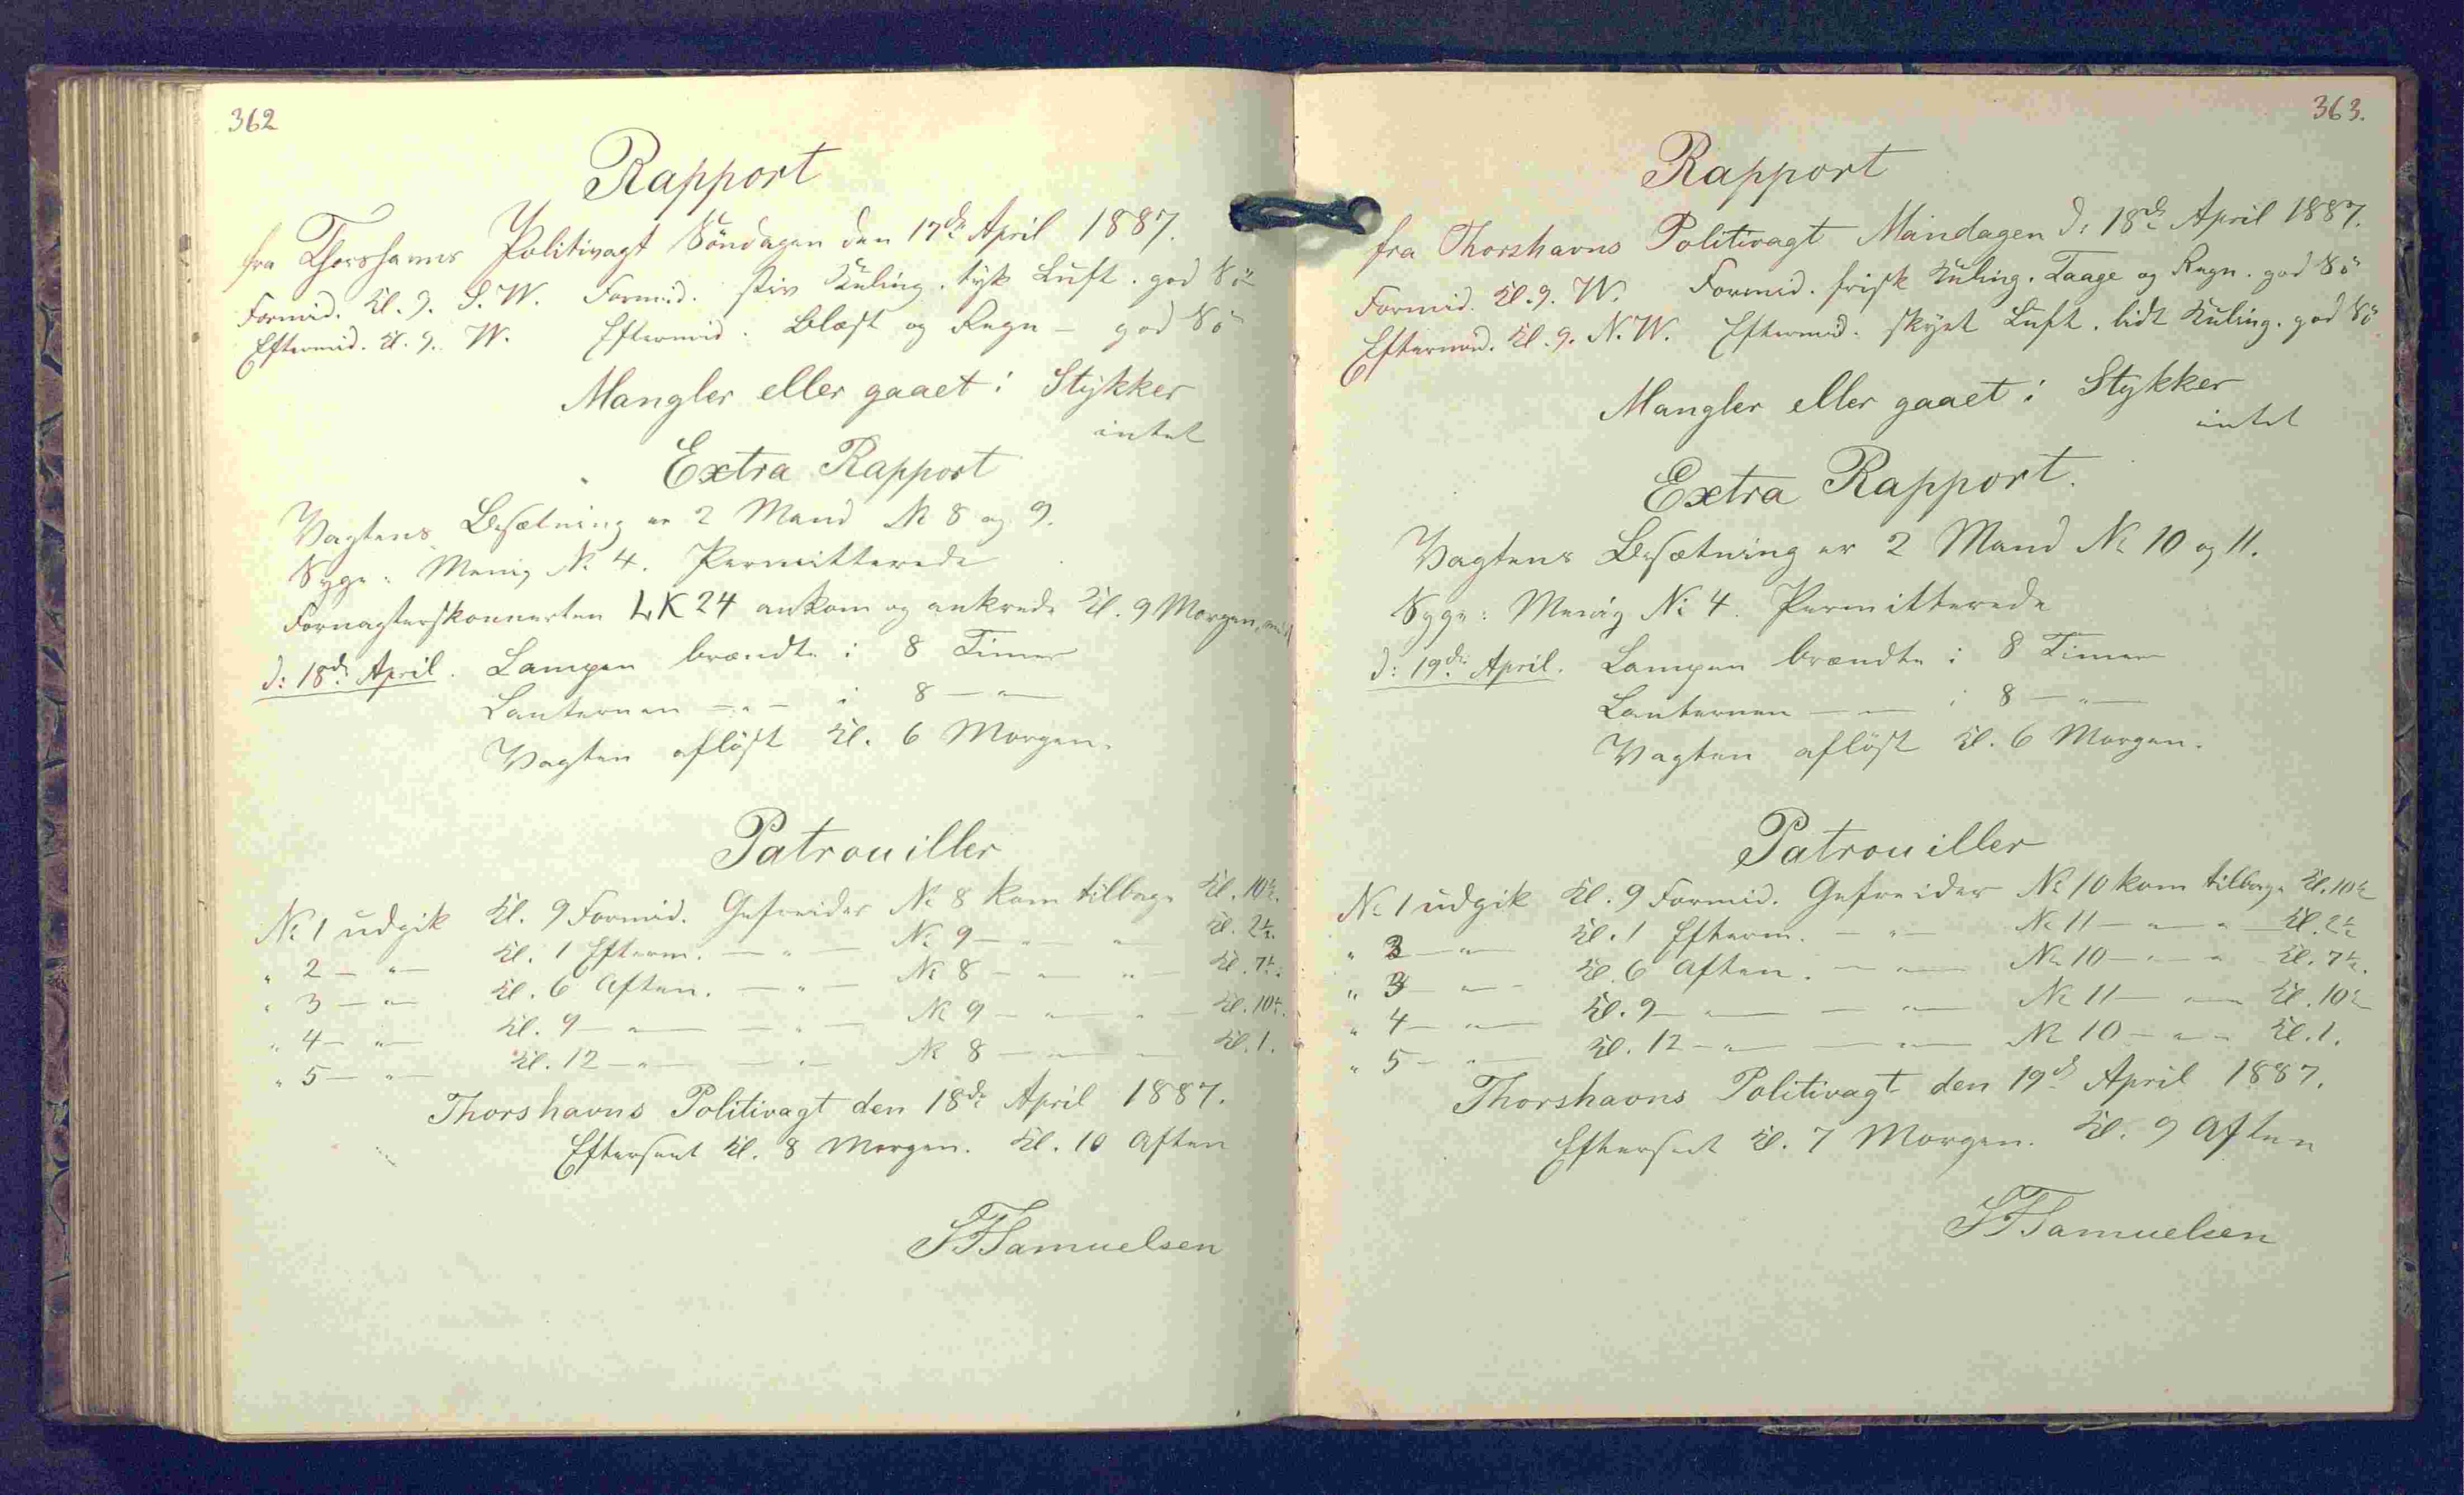 362
Rapport
fra Thorshavns Politivagt Söndagen den 17de April 1887.
Formid. Kl. 9. S.W. Formid. stiv Kuling. tyk Luft. god Sö
Eftermid. Kl. 9. W. Eftermid. Blæst og Regn — god Sö
Mangler eller gaaet i Stykker
intet
Extra Rapport
Vagtens Besætning er 2 Mand № 8 og 9.
Syge: Menig № 4. Permitterede
Fornagterskonnerten LK 24 ankom og ankrede Kl. 9 Morgen,
d: 18de April. Lampen brændte i 8 Timer
Lanternen — " — i 8 — " —
Vagten aflöst Kl. 6 Morgen.
Patrouiller
№ 1 udgik Kl. 9 Formid. Gefreider № 8 kom tilbage Kl. 10½.
" 2 — " — Kl. 1 Efterm. — " — № 9 — " — " — Kl. 2½.
" 3 — " — Kl. 6 Aften. — " — № 8 — " — " — Kl. 7½.
" 4 — " — Kl. 9 — " — — " — № 9 — " — " — Kl. 10½.
" 5 — " — Kl. 12 — " — — " — № 8 — " — " — Kl. 1.
Thorshavns Politivagt den 18de April 1887.
Efterseet Kl. 8 Morgen. Kl. 10 Aften
SFSamuelsen
363.
Rapport
fra Thorshavns Politivagt Mandagen d: 18de April 1887.
Formid. Kl. 9. W. Formid. frisk Kuling. Taage og Regn. god Sö
Eftermid. Kl. 9. N.W. Eftermid. skyet Luft. lidt Kuling. god Sö
Mangler eller gaaet i Stykker
intet
Extra Rapport.
Vagtens Besætning er 2 Mand № 10 og 11.
Syge: Menig № 4. Permitterede
d: 19de April. Lampen brændte i 8 Timer
Lanternen — — i 8 — " —
Vagten aflöst Kl. 6 Morgen.
Patrouiller
№ 1 udgik Kl. 9 Formid. Gefreider № 10 kom tilbage Kl. 10½
" 2 — " — Kl. 1 Efterm. — " — № 11 — " — " — Kl. 2½
" 3 — " — Kl. 6 Aften. — " — № 10 — " — " — Kl. 7½.
" 4 — " — Kl. 9 — " — — " — № 11 — " — Kl. 10½
" 5 — " — Kl. 12 — " — — " — № 10 — " — " — Kl. 1.
Thorshavns Politivagt den 19de April 1887.
Efterseet Kl. 7 Morgen. Kl. 9 Aften
SFSamuelsen